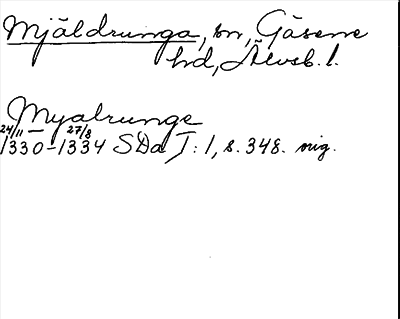 Mjäldrunga, sn, Gäsene
hd, Älvsb. l.
Myalrunge
24/11 27/8
1330-1334 SDa I: 1, s. 348. orig.